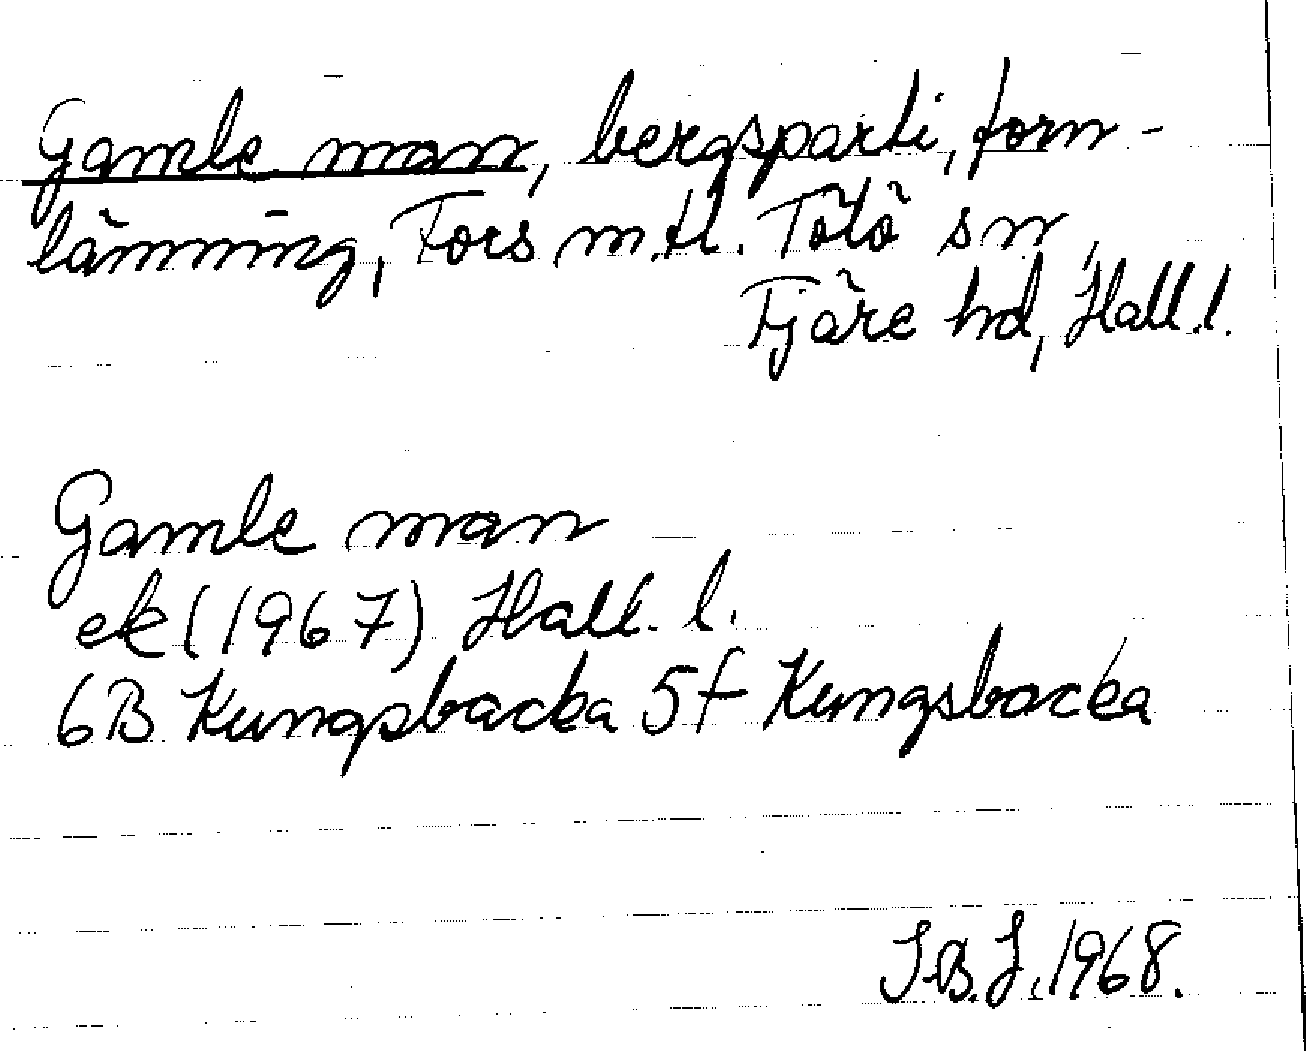 Gamle man, bergsparti, forn-
lämning, Fors m.fl. Tölö sn,
Fjäre hd, Hall.l.
Gamle man
ek (1967) Hall. l.
6B Kungsbacka 5f Kungsbacka
I.B.J. 1968.